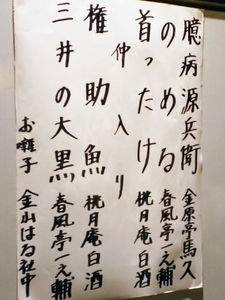 臆病源兵衛 金原亭馬久
のめる 春風亭一之輔
首ったけ 桃月庵白酒
仲入り
権助魚 桃月庵白酒
三井の大黒 春風亭一之輔
お囃子 金山はる社中